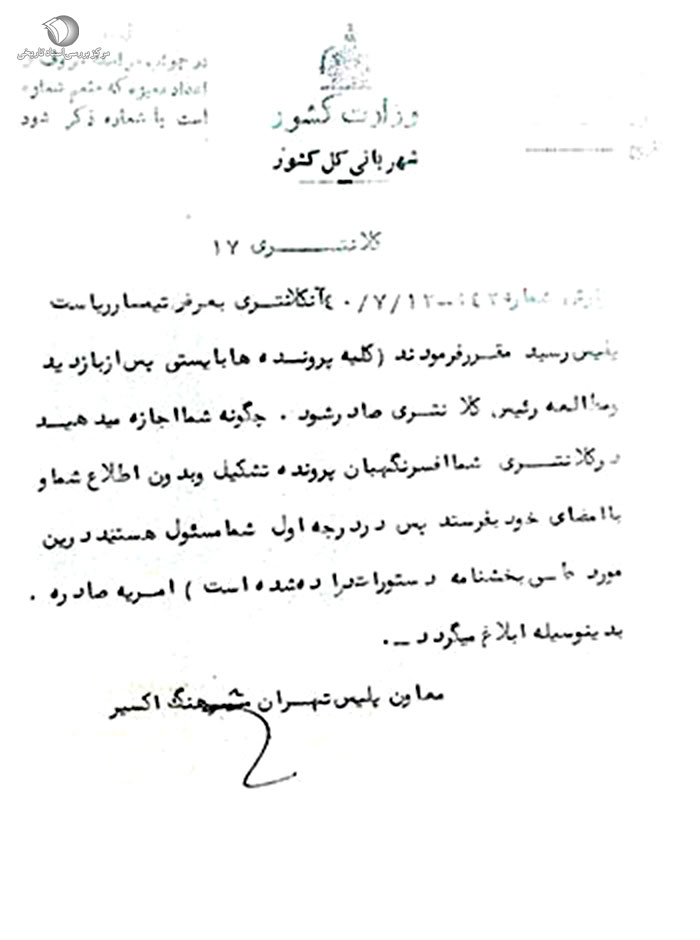 مرکز بررسی اسناد تاریخی
در جواب
اعداد ممیزه که متمم شماره
است با شماره ذکر شود
وزارت کشور
شهربانی کل کشور
کلانتری ۱۷
شماره آنکلانتری بعرض تیمسار ریاست
پلیس رسید مقرر فرمودند (کلیه پرونده ها بایستی پس از بازدید
ومطالعه رئیس کلانتری صادر شود . چگونه شما اجازه میدهید
در کلانتری شما افسر نگهبان پرونده تشکیل وبدون اطلاع شما و
با امضای خود بفرستد پس در درجه اول شما مسئول هستند درین
مورد بخشنامه دستورات داده شده است ) امریه صادره .
بدینوسیله ابلاغ میگردد ــ .
معاون پلیس تهران سرهنگ اکسیر